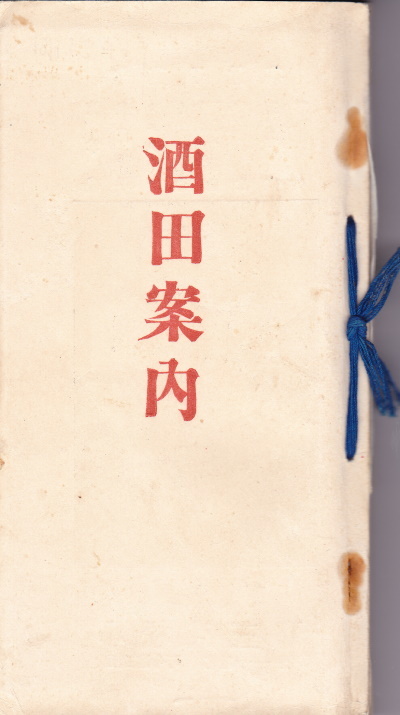 酒田案内